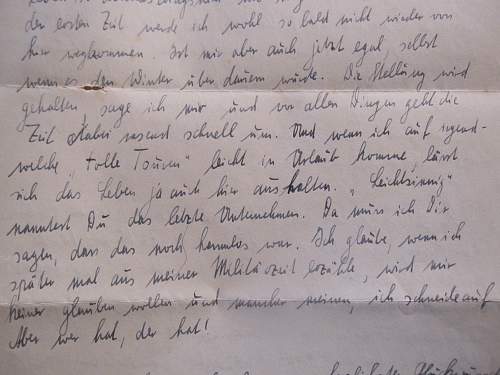 der ersten Zeit werde ich wohl so bald nicht wieder von
hier wegkommen. Ist mir aber auch jetzt egal, selbst
wenn es den Winter über dauern würde. Die Stellung wird
gehalten, sage ich mir und vor allen Dingen geht die
Zeit dabei rasend schnell um. Und wenn ich auf irgend-
welche „tolle Touren" leicht in Urlaub komme, lässt
sich das Leben ja auch hier aushalten. „Leichtsinnig"
nanntest Du das letzte Unternehmen. Da muss ich Dir
sagen, dass das noch harmlos war. Ich glaube, wenn ich
später mal aus meiner Militärzeit erzähle, wird mir
keiner glauben wollen und mancher meinen, ich schneide auf
Aber wer hat, der hat!